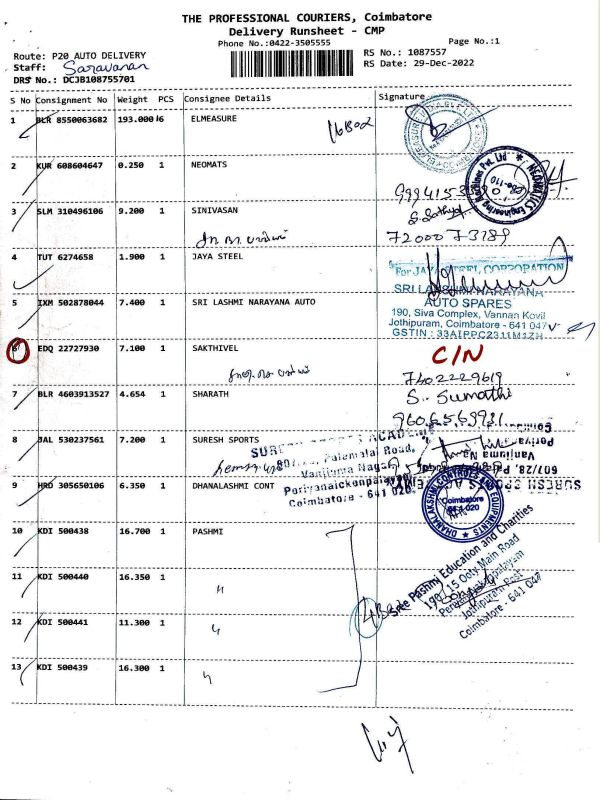 THE PROFESSIONAL COURIERS, Coimbatore
Delivery Runsheet - CMP
Phone No.:0422-3505555
Page No.:1
Route: P20 AUTO DELIVERY
RS No.: 1087557
Staff: Saravanan
RS Date: 29-Dec-2022
DRS No.: DCJB108755701
S No Consignment No Weight PCS Consignee Details Signature
1 BLR 8550063682 193.000 16 ELMEASURE
16 Box
2 KUR 608604647 0.250 1 NEOMATS
3 SLM 310496106 9.200 1 SINIVASAN
72000 73189
4 TUT 6274658 1.900 1 JAYA STEEL
For JAYA STEEL CORPORATION
5 IXM 502878044 7.400 1 SRI LASHMI NARAYANA AUTO
SRI LAKSHMI NARAYANA
AUTO SPARES
190, Siva Complex, Vannan Kovil
Jothipuram, Coimbatore - 641 047
6 EDQ 22727930 7.100 1 SAKTHIVEL
C/N
7402229619
7 BLR 4603913527 4.654 1 SHARATH
S. Sumathi
8 JAL 530237561 7.200 1 SURESH SPORTS
SURESH SPORTS ACADEMY
607/28, Palamalai Road,
Vanjiuma Nagar
Periyanaickenpalayam
Coimbatore - 641 020.
9 HRD 305650106 6.350 1 DHANALASHMI CONT
DHANALAKSHMI CONTROLS AND EQUIPMENTS
Coimbatore
10 KDI 500438 16.700 1 PASHMI
11 KDI 500440 16.350 1 "
12 KDI 500441 11.300 1 "
13 KDI 500439 16.300 1 "
Pashmi Education and Charities
15 Ooty Main Road
Jothipuram Post
Coimbatore - 641 047